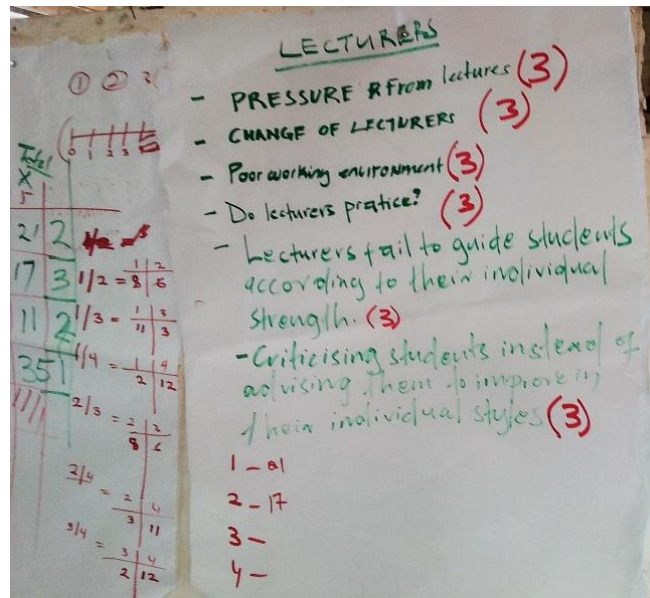 LECTURERS
- PRESSURE From lectures (3)
- CHANGE OF LECTURERS (3)
- Poor working environment (3)
- Do lecturers pratice? (3)
- Lecturers fail to guide students
according to their individual
strength. (3)
- Criticising students instead of
advising them to improve in
their individual styles (3)
1 -
2 - 17
3 -
4 -
① ② 3
0 1 2 3
Total
X
5
21 2
17 3
11 2
35 1
1/2 = 1 2
8 6
1/3 = 1 3
11 3
1/4 = 1 4
2 12
2/3 = 2 2
8 6
2/4 = 2 4
3 11
3/4 = 3 4
2 12